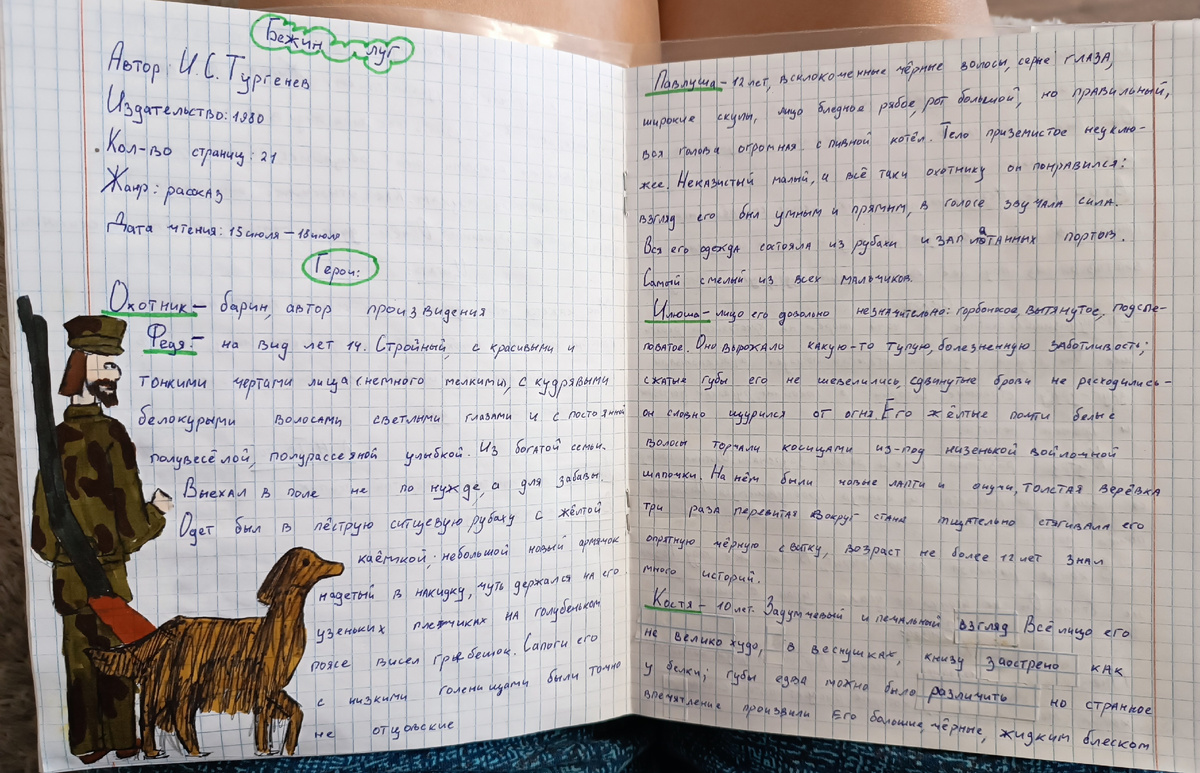 Бежин луг
Автор: И.С. Тургенев
Издательство: 1980
Кол-во страниц: 21
Жанр: рассказ
Дата чтения: 15 июля – 18 июля
Герои:
Охотник – барин, автор произвидения
Федя – на вид лет 14. Стройный, с красивыми и
тонкими чертами лица (немного мелкими), с кудрявыми
белокурыми волосами светлыми глазами и с постоянной
полувесёлой, полурассеяной улыбкой. Из богатой семьи.
Выехал в поле не по нужде, а для забавы.
Одет был в пёструю ситцевую рубаху с жёлтой
каёмкой; небольшой новый армячок
надетый в накидку, чуть держался на его
узеньких плечиках на голубеньком
поясе висел гребешок. Сапоги его
с низкими голенищами были точно
не отцовские
Павлуша – 12 лет, всклокоменные чёрные волосы, серые глаза,
широкие скулы, лицо бледное рябое, рот большой, но правильный,
вся голова огромная с пивной котёл. Тело приземистое неуклю-
жее. Неказистый малый, а всё таки охотнику он понравился:
взгляд его был умным и прямым, в голосе звучала сила.
Вся его одежда состояла из рубахи и заплатанных портов.
Самый смелый из всех мальчиков.
Илюша – лицо его довольно незначительно: горбоносое, вытянутое, подсле-
поватое. Оно вырожало какую-то тупую, болезненную заботливость;
сжатые губы его не шевелились, сдвинутые брови не расходились-
он словно щурился от огня. Его жёлтые почти белые
волосы торчали косицами из-под низенькой войлочной
шапочки. На нём были новые лапти и онучи, толстая верёвка
три раза перевитая вокруг стана тщательно стягивала его
опрятную чёрную свитку, возраст не более 12 лет знал
много историй.
Костя – 10 лет. Задумчевый и печальный взгляд Всё лицо его
не велико худо, в веснушках, книзу заострено как
у белки; губы едва можно было различить но странное
впечятление произвили Его большие, чёрные, жидким блеском